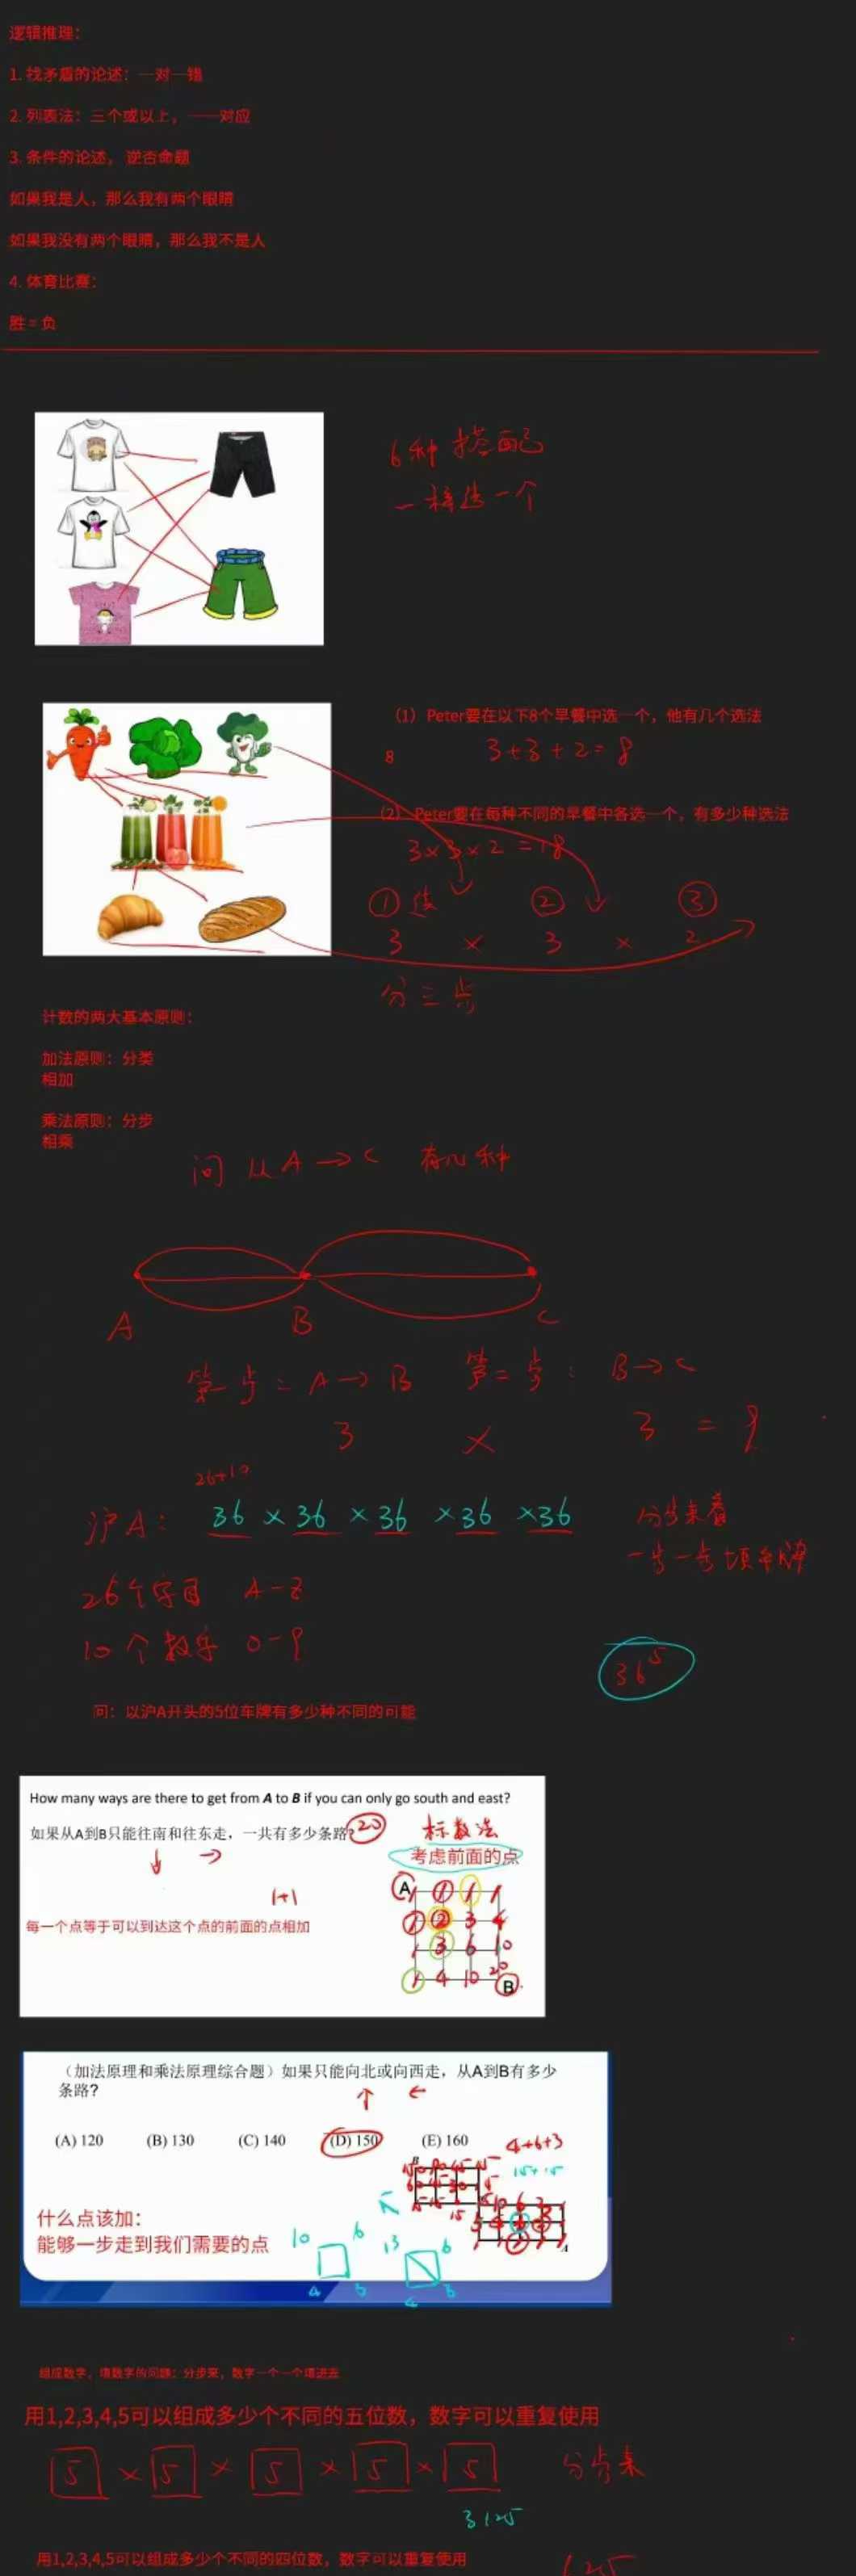 逻辑推理：
1. 找矛盾的论述：一对一错
2. 列表法：三个或以上，一一对应
3. 条件的论述，逆否命题
如果我是人，那么我有两个眼睛
如果我没有两个眼睛，那么我不是人
4. 体育比赛：
胜 = 负
6种 搭配
一样选一个
（1）Peter要在以下8个早餐中选一个，他有几个选法
8 3+3+2=8
（2）Peter要在每种不同的早餐中各选一个，有多少种选法
3×3×2=18
① 选 ② ③
3 × 3 × 2
分三步
计数的两大基本原则：
加法原则：分类
相加
乘法原则：分步
相乘
问 从A→C 有几种
A B C
第一步：A→B 第二步：B→C
3 × 3 = 9
26+10
沪A： 36 × 36 × 36 × 36 × 36 分步来看
一步一步填车牌
26个字母 A-Z
10个数字 0-9
36⁵
问：以沪A开头的5位车牌有多少种不同的可能
How many ways are there to get from A to B if you can only go south and east?
如果从A到B只能往南和往东走，一共有多少条路？ 20 标数法
↓ → 考虑前面的点
1+1
每一个点等于可以到达这个点的前面的点相加
A 1 1 1
1 2 3 4
1 3 6 10
1 4 10 20
B
（加法原理和乘法原理综合题）如果只能向北或向西走，从A到B有多少
条路？
↑ ←
(A) 120 (B) 130 (C) 140 (D) 150 (E) 160
4+6+3
15+15
什么点该加：
能够一步走到我们需要的点
10 6 13 6
4 4
组成数字，填数字的问题：分步来，数字一个一个填进去
用1,2,3,4,5可以组成多少个不同的五位数，数字可以重复使用
5 × 5 × 5 × 5 × 5 分步来
3125
用1,2,3,4,5可以组成多少个不同的四位数，数字可以重复使用